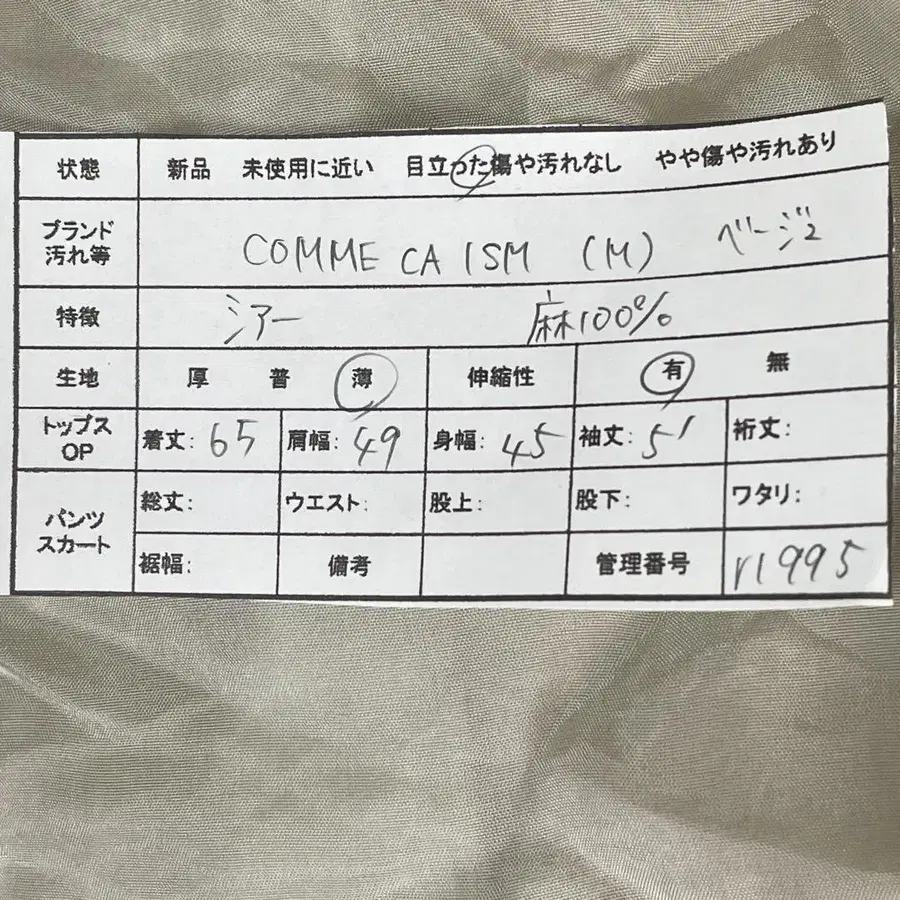 状態 新品 未使用に近い 目立った傷や汚れなし やや傷や汚れあり
ブランド
汚れ等 COMME CA ISM (M) ベージュ
特徴 シアー 麻100%
生地 厚 普 薄 伸縮性 有 無
トップス
OP 着丈: 65 肩幅: 49 身幅: 45 袖丈: 51 裄丈:
パンツ
スカート 総丈: ウエスト: 股上: 股下: ワタリ:
裾幅: 備考 管理番号 r1995